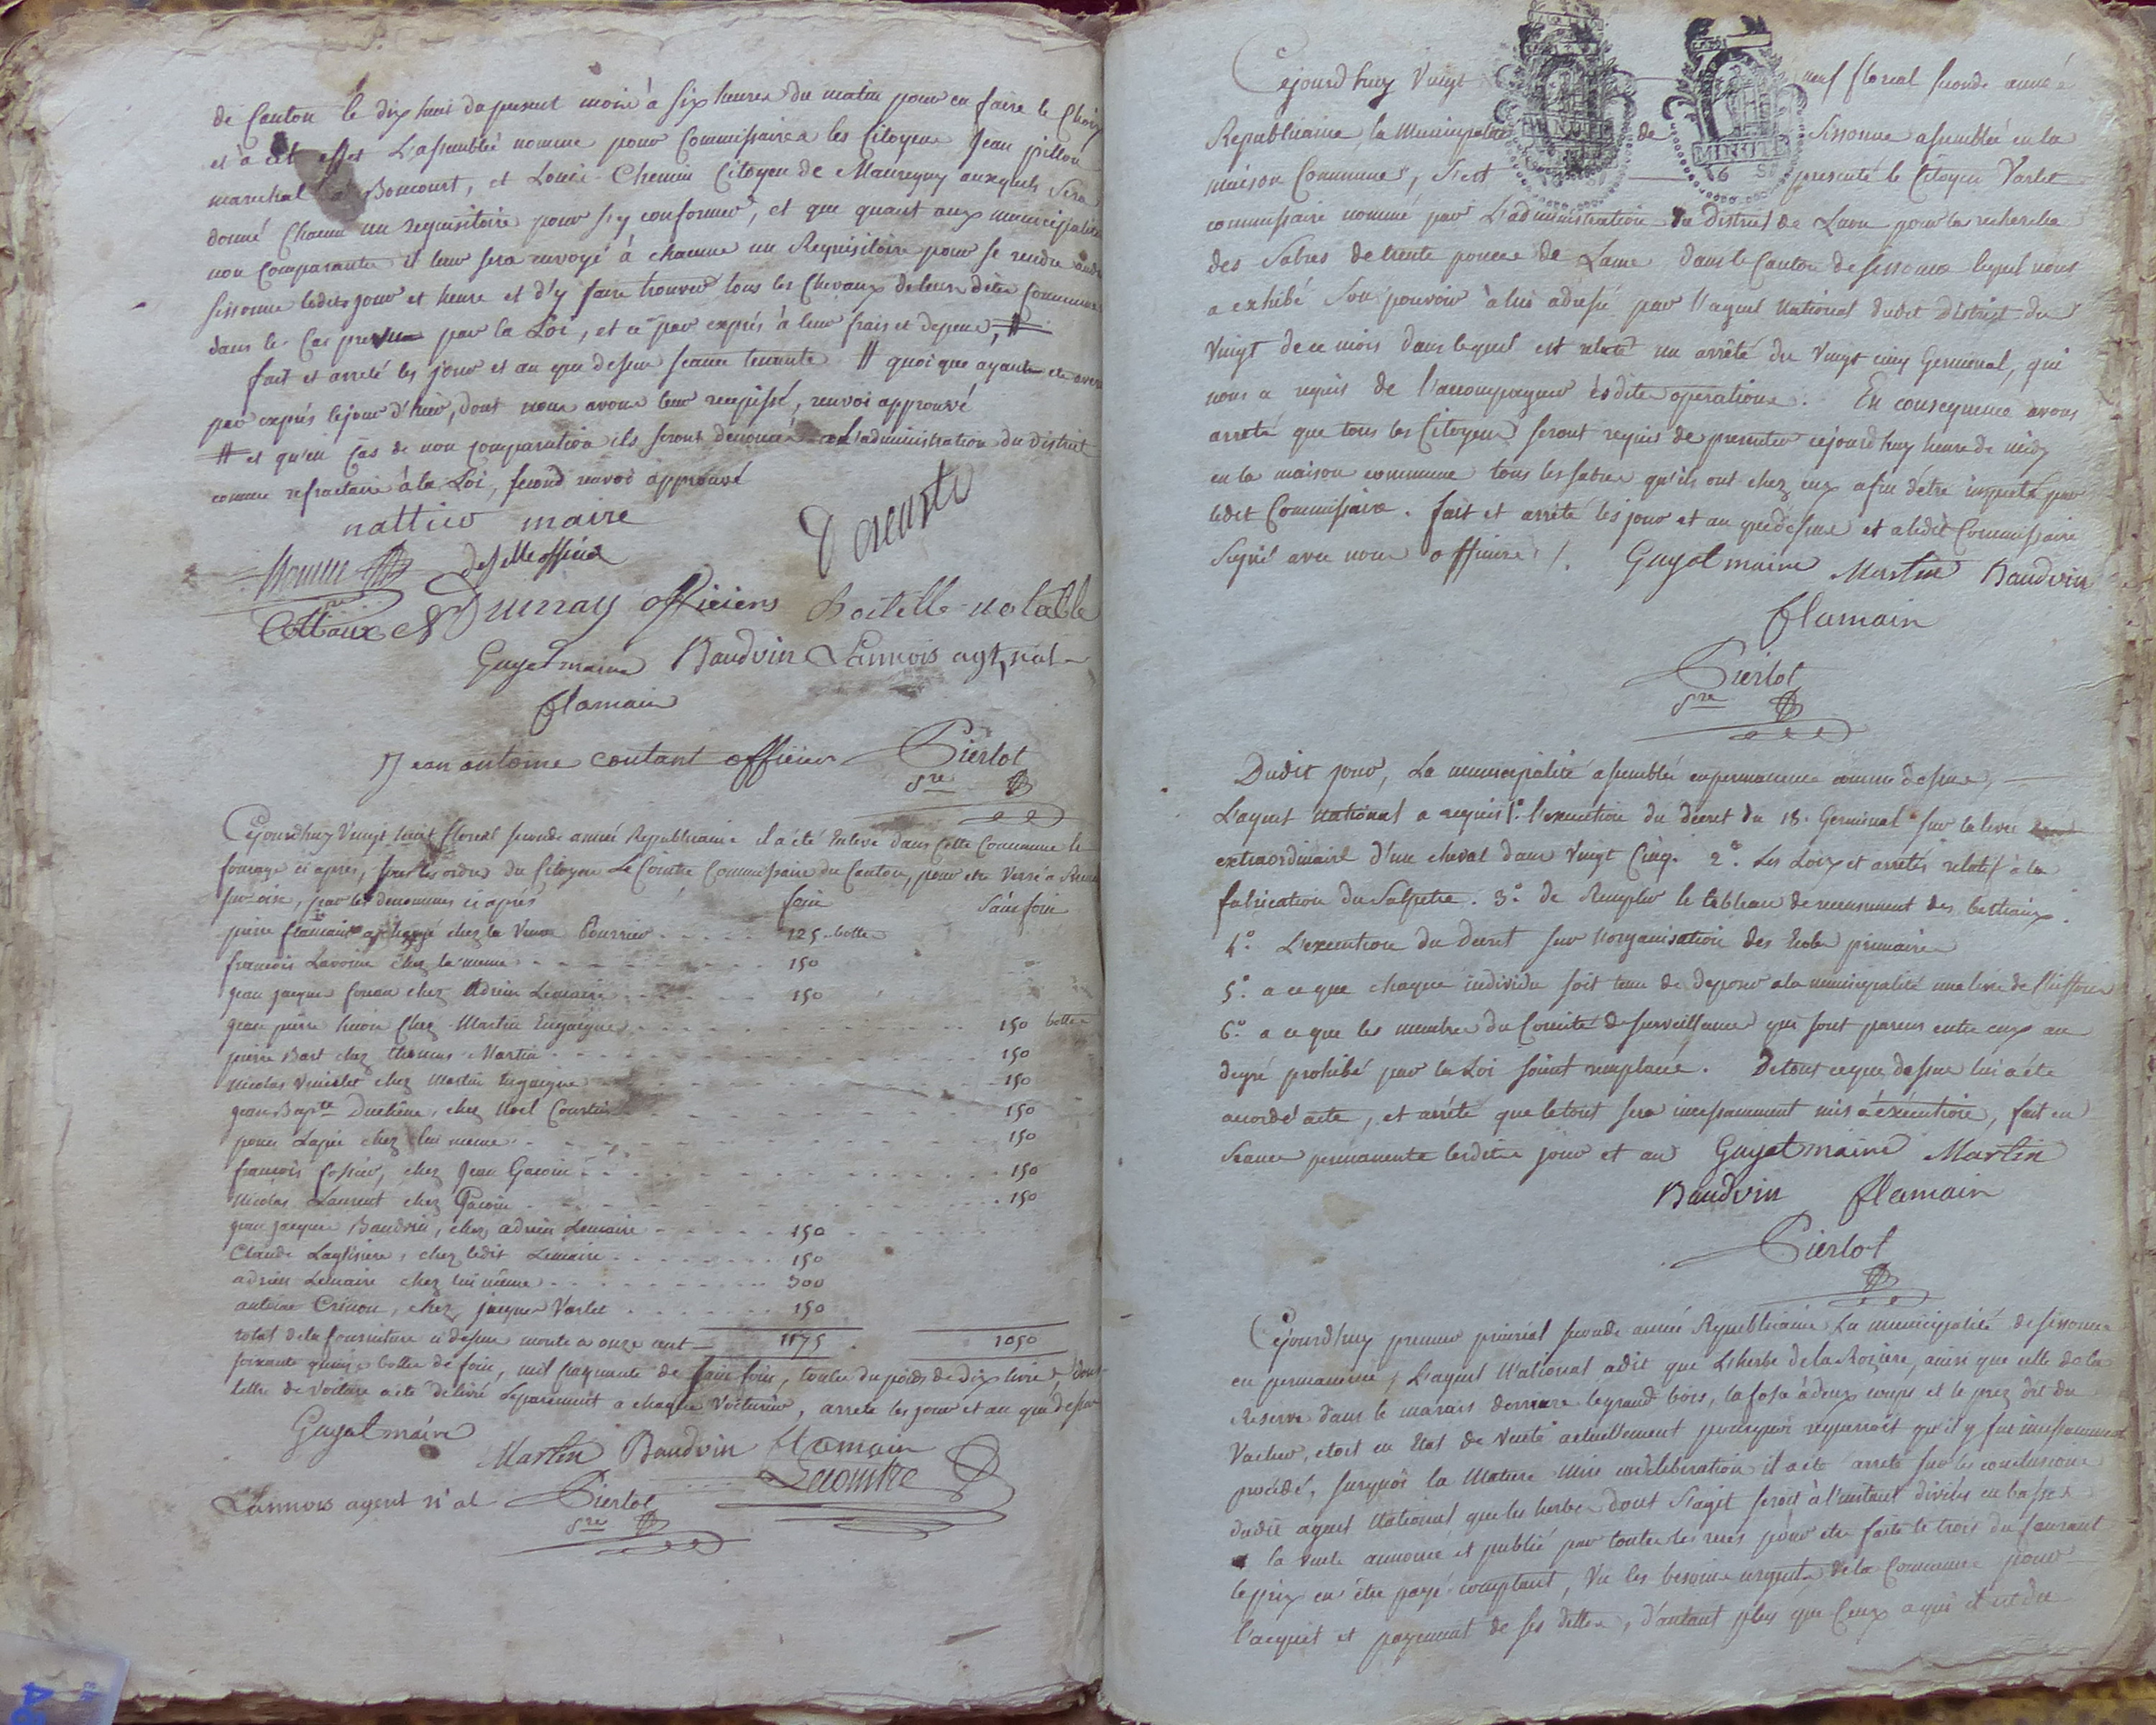 de Canton le dix huit du present mois à six heures du matin pour en faire le Choix
et à cet effet L'assemblée nomme pour Commissaires les Citoyens Jean pillon
marechal à Boncourt, et Louis Chemin Citoyen de Mauregny auxquels sera
donné Chacun un requisitoire pour s'y conformer, et que quant aux municipalités
non Comparantes il leur sera envoyé à chacune un Requisitoire pour se rendre audit
sissonne lesdits jour et heure et d'y faire trouver tous les Chevaux de leurs dites Communes
dans le Cas prevu par la Loi, et ce par exprés à leur frais et depens, #
fait et arreté les jour et an que dessus seance tenante # quoique ayant ete averti
par exprés le jour d'hier, dont nous avons leur recepissé, renvoi approuvé
# et qu'en Cas de non comparution ils seront denoncés à L'administration du District
comme refractaire à la Loi, second renvoi approuvé
nattier maire
officier
Cottaux Dunay officiers Boitelle notable
Guyot maire Baudvin Lannois agt nal
flamain
Jean antoine coutant officier Pierlot
sre
Cejourd'huy Vingt huit floreal seconde année Republicaine il a été Enlevé dans cette Commune le
fourage ci apres, sous les ordres du Citoyen Le Cointre Commissaire du Canton, pour etre Versé à
sur oise, par les denommés ci aprés foin Sainfoin
pierre flamain chez la Veuve Pourrier 125 bottes
françois Lavoine chez la meme 150
jean jacques foneau chez Adrien Lemaire 150
jean pierre huion Chez Martin Enguigne 150 bottes
pierre Bart chez thomas Martin 150
Nicolas chez Martin Enguigne 150
jean Bapte Duchêne, chez Noel Courtin 150
Lapie chez lui meme 150
françois fossier, chez Jean Gacoin 150
Nicolas Laurent chez Gacoin 150
jean jacques Baudvin, chez adrien Lemaire 150
Claude Laglisiere, chez ledit Lemaire 150
adrien Lemaire chez lui même 300
antoine Crinon, chez jacques Varlet 150
total de la fourniture ci dessus monte a onze cent 1175 1050
soixante quinze bottes de foin, mil cinquante de sain foin, toutes du poids de dix livres dont
lettre de voiture a été délivré séparement a chaque Voiturier, arreté les jour et an que dessus
Guyot maire
Martin Baudvin flamain
Lannois agent n'al Pierlot Lecointre
sre
Cejourd'huy Vingt neuf floreal seconde année
Republicaine, la Municipalité de Sissonne assemblée en la
maison Commune, s'est presenté le Citoyen Varlet
MINUTE
MINUTE
commissaire nommé par L'administration du District de Laon pour la recherche
des Sabres de trente pouces de Lame dans le Canton de sissonne lequel nous
a exhibé son pouvoir à lui adressé par l'agent National dudit District du
Vingt de ce mois dans lequel est relaté un arrêté du Vingt cinq Germinal, qui
nous a requis de l'accompagner ès dites operations. En consequence avons
arreté que tous les Citoyens seront requis de presenter cejourd'huy heure de midy
en la maison commune tous les sabres qu'ils ont chez eux afin d'être inspecté par
ledit Commissaire. fait et arrêté les jour et an que dessus et a ledit Commissaire
signé avec nous officiers. Guyot maire Martin Baudvin
flamain
Pierlot
sre
Dudit jour, La municipalité assemblée en permanence comme dessus,
L'agent national a requis 1.° l'execution du decret du 18. Germinal sur la levée
extraordinaire d'un cheval dans Vingt Cinq. 2.° Les Loix et arretés relatif à la
fabrication du Salpetre. 3.° de Remplir le tableau de recensement des bestiaux.
4.° L'execution du decret sur l'organisation des Ecoles primaires
5.° a ce que chaque individu soit tenu de deposer a la municipalité une livre de Chiffons
6.° a ce que les membres du Comité de surveillance qui sont parens entre eux au
degré prohibé par la Loi soient remplacés. De tout ce que dessus lui a été
accordé acte, et arrêté que le tout sera incessamment mis à éxécution, fait en
Seance permanente lesdits jour et an Guyot maire Martin
Baudvin flamain
Pierlot
Cejourd'huy premier prairial seconde année Republicaine La municipalité de sissonne
en permanence, L'agent National a dit que L'herbe de la Roziere, ainsi que celle de la
Reserve dans le marais derriere le grand bois, la fosse à deux coups et le prez dit du
Vacher, etoit en Etat de Vente actuellement pourquoi requeroit qu'il y fut incessamment
procédé, surquoi la Matiere Mise en deliberation il a été arreté sur les conclusions
dudit agent National que les herbes dont s'agit seroit à l'instant divisées en
la vente annoncée et publié par toutes les rues pour etre faite le trois du Courant
le prix en être payé comptant, Vu les besoins urgents de la Commune pour
l'acquit et payement de ses dettes, d'autant plus que Ceux a qui il est du